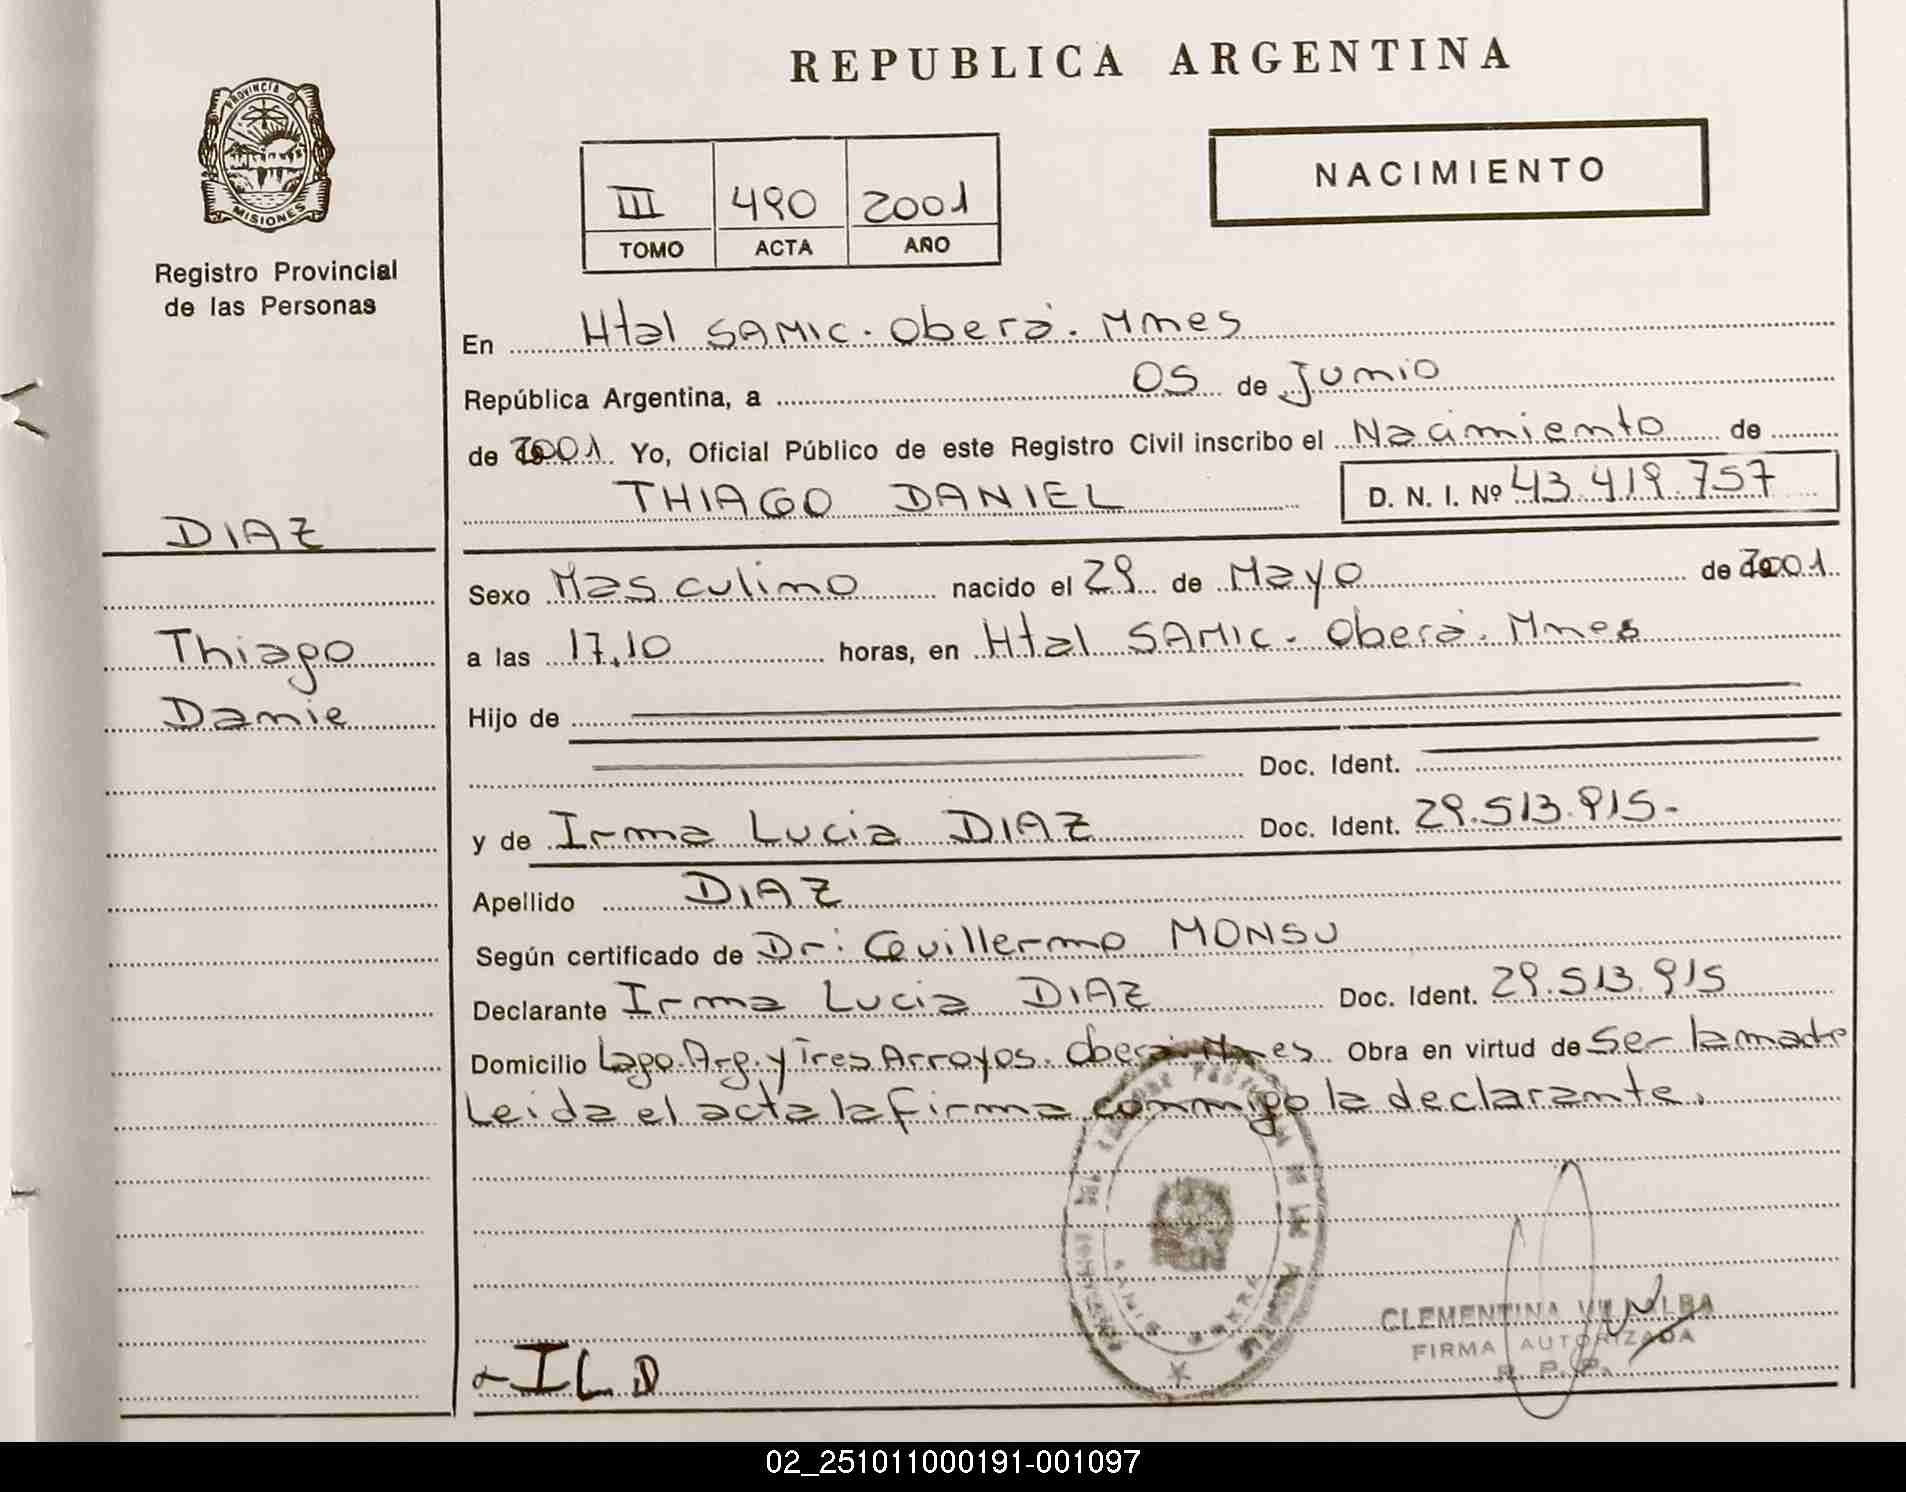 REPUBLICA ARGENTINA
PROVINCIA DE
MISIONES
Registro Provincial
de las Personas
NACIMIENTO
III 490 2001
TOMO ACTA AÑO
En Htal SAMIC. Oberá. Mnes
República Argentina, a 05 de Junio
de 2001 Yo, Oficial Público de este Registro Civil inscribo el Nacimiento de
THIAGO DANIEL D. N. I. Nº 43.419.757
DIAZ
Thiago
Danie
Sexo Masculino nacido el 29 de Mayo de 2001
a las 17,10 horas, en Htal SAMIC. Oberá. Mnes
Hijo de
Doc. Ident.
y de Irma Lucia DIAZ Doc. Ident. 29.513.915-
Apellido DIAZ
Según certificado de Dr: Guillermo MONSU
Declarante Irma Lucia DIAZ Doc. Ident. 29.513.915
Domicilio Lago.Arg.y Tres Arroyos. Oberá.Mnes Obra en virtud de Ser la madre
Leida el acta la firma conmigo la declarante.
CLEMENTINA VILLALBA
FIRMA AUTORIZADA
R. P. P.
ILD
02_251011000191-001097